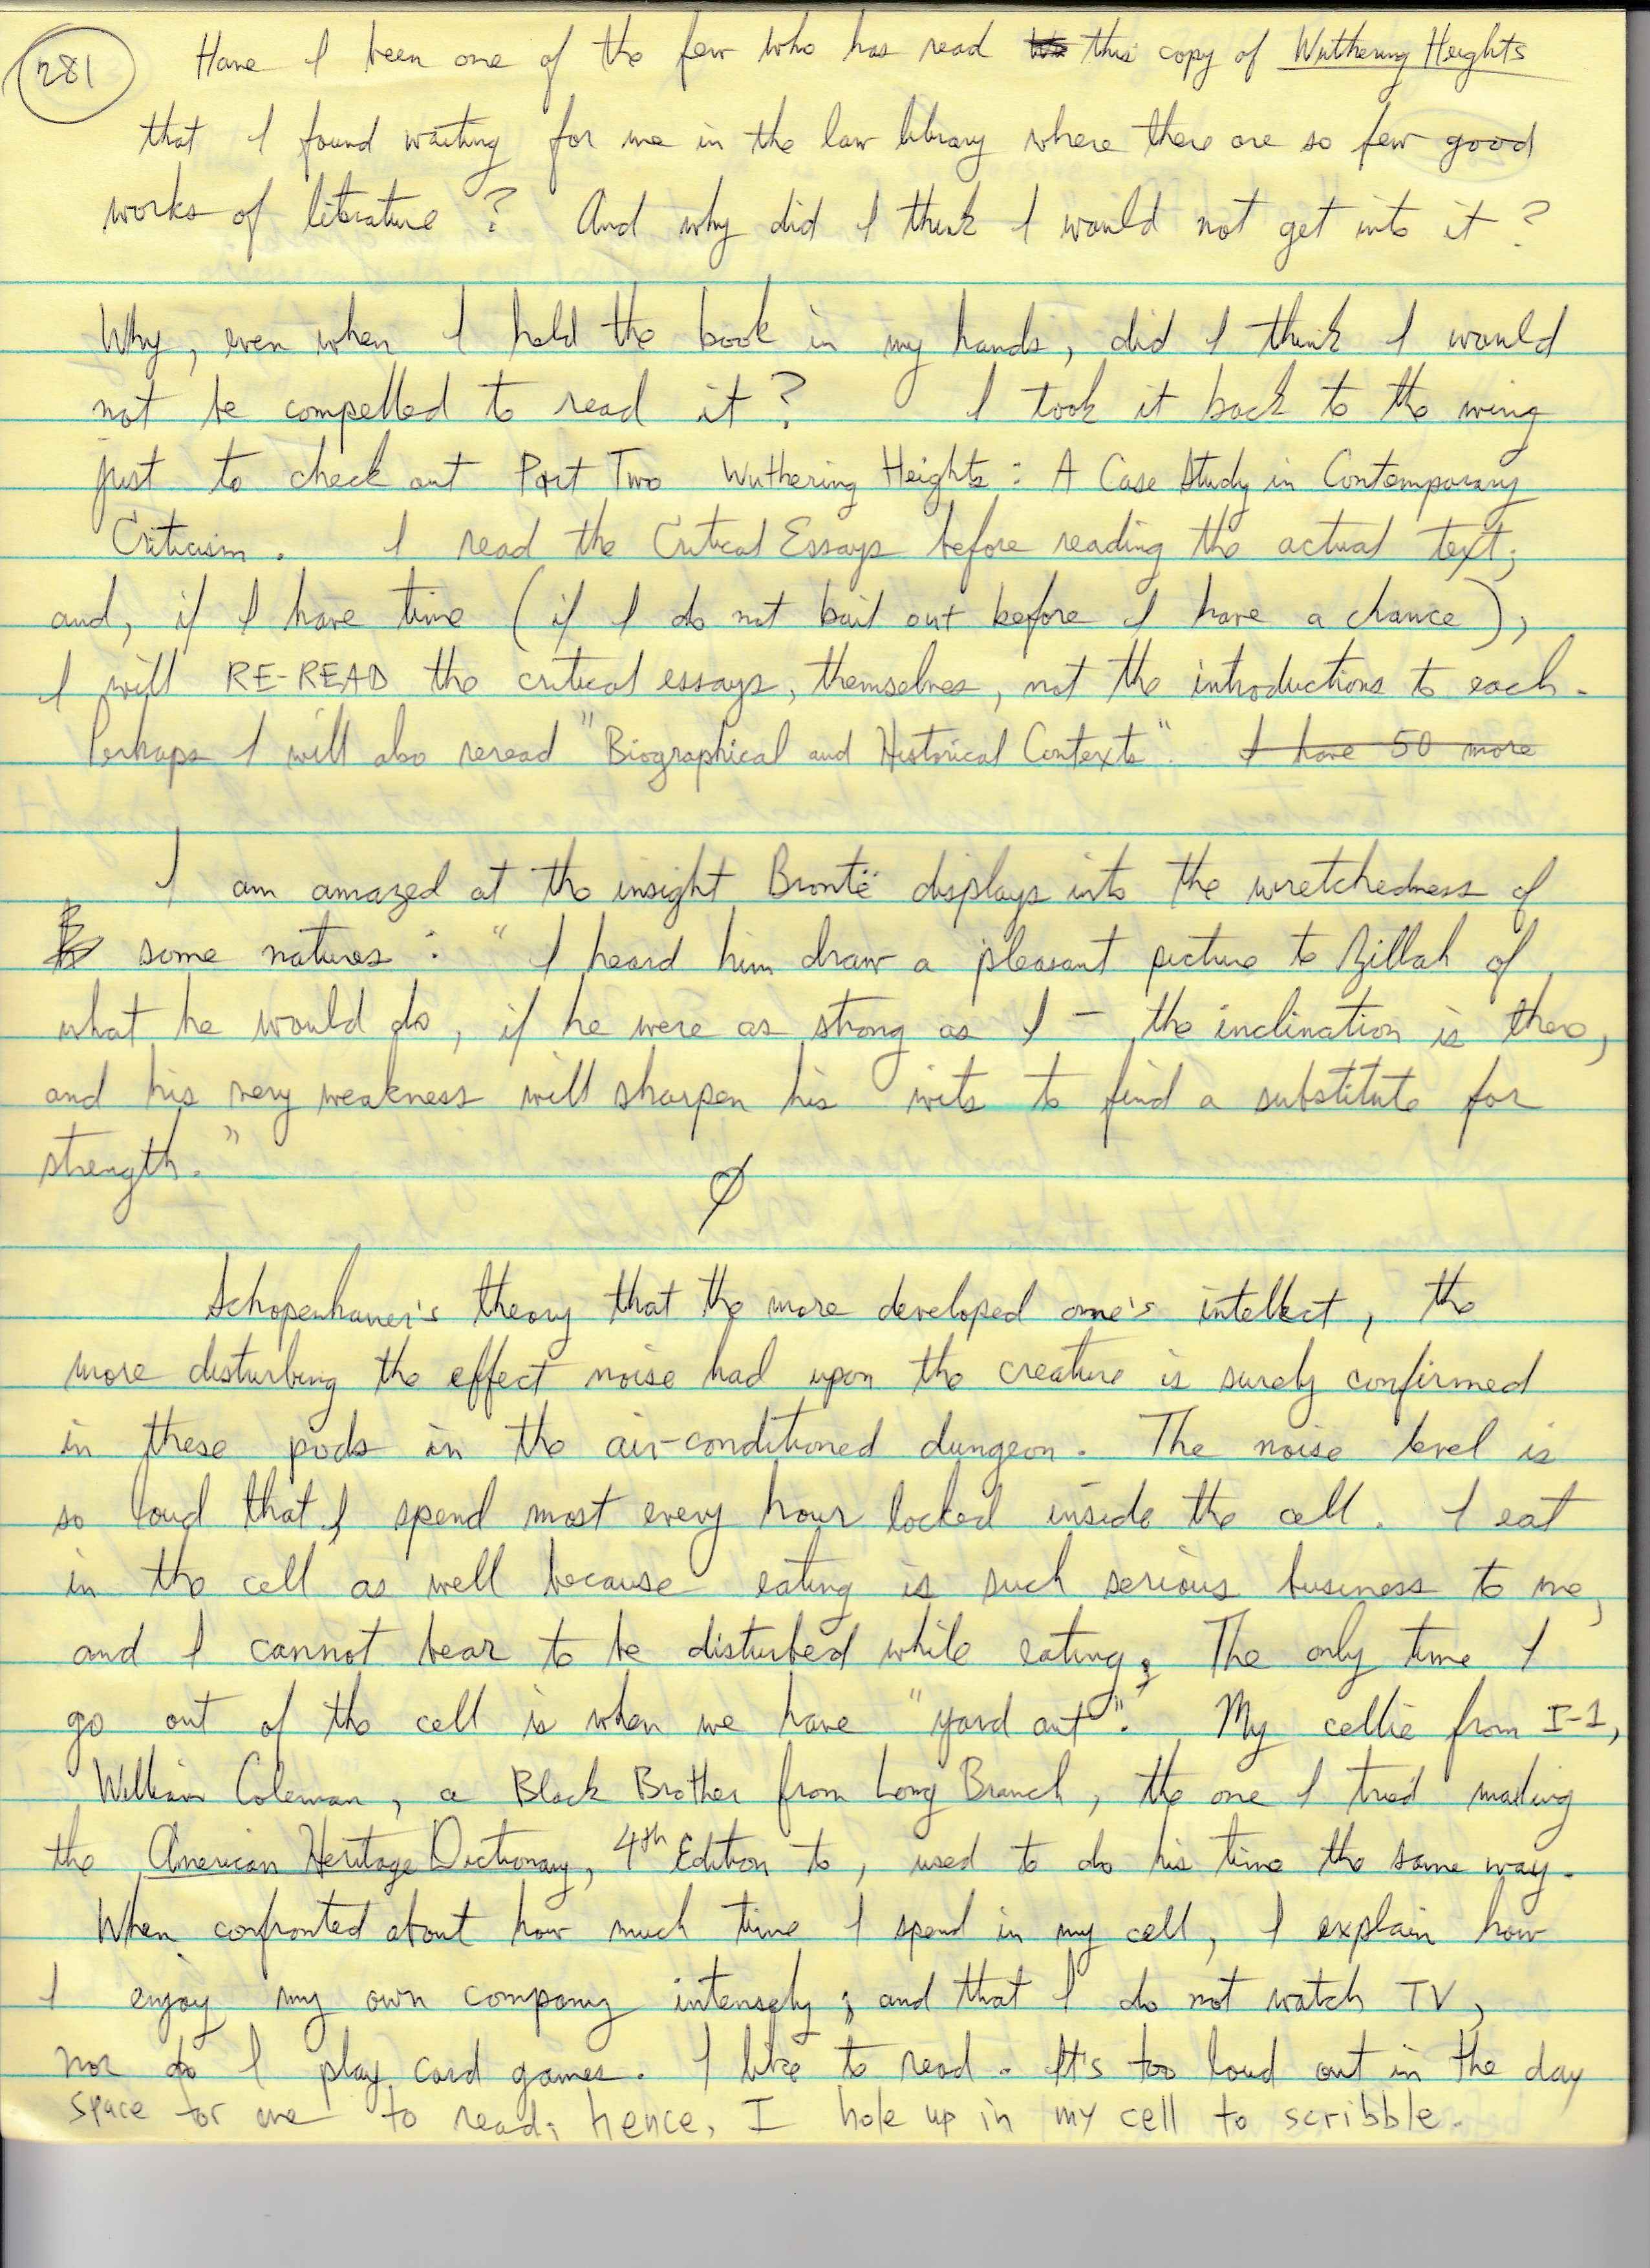 281
Have I been one of the few who has read this copy of Wuthering Heights
that I found waiting for me in the law library where there are so few good
works of literature? And why did I think I would not get into it?
Why, even when I held the book in my hands, did I think I would
not be compelled to read it? I took it back to the wing
just to check out Part Two Wuthering Heights: A Case Study in Contemporary
Criticism. I read the Critical Essays before reading the actual text;
and, if I have time (if I do not bail out before I have a chance),
I will RE-READ the critical essays, themselves, not the introductions to each.
Perhaps I will also reread "Biographical and Historical Contexts". I have 50 more
I am amazed at the insight Brontë displays into the wretchedness of
some natures: "I heard him draw a pleasant picture to Zillah of
what he would do, if he were as strong as I – the inclination is there,
and his very weakness will sharpen his wits to find a substitute for
strength."
Schopenhauer's theory that the more developed one's intellect, the
more disturbing the effect noise had upon the creature is surely confirmed
in these pods in the air-conditioned dungeon. The noise level is
so loud that I spend most every hour locked inside the cell. I eat
in the cell as well because eating is such serious business to me,
and I cannot bear to be disturbed while eating; The only time I
go out of the cell is when we have "yard out". My cellie from I-1,
William Coleman, a Black Brother from Long Branch, the one I tried mailing
the American Heritage Dictionary, 4th Edition to, used to do his time the same way.
When confronted about how much time I spend in my cell, I explain how
I enjoy my own company intensely; and that I do not watch TV,
nor do I play card games. I like to read. It's too loud out in the day
space for me to read; hence, I hole up in my cell to scribble.